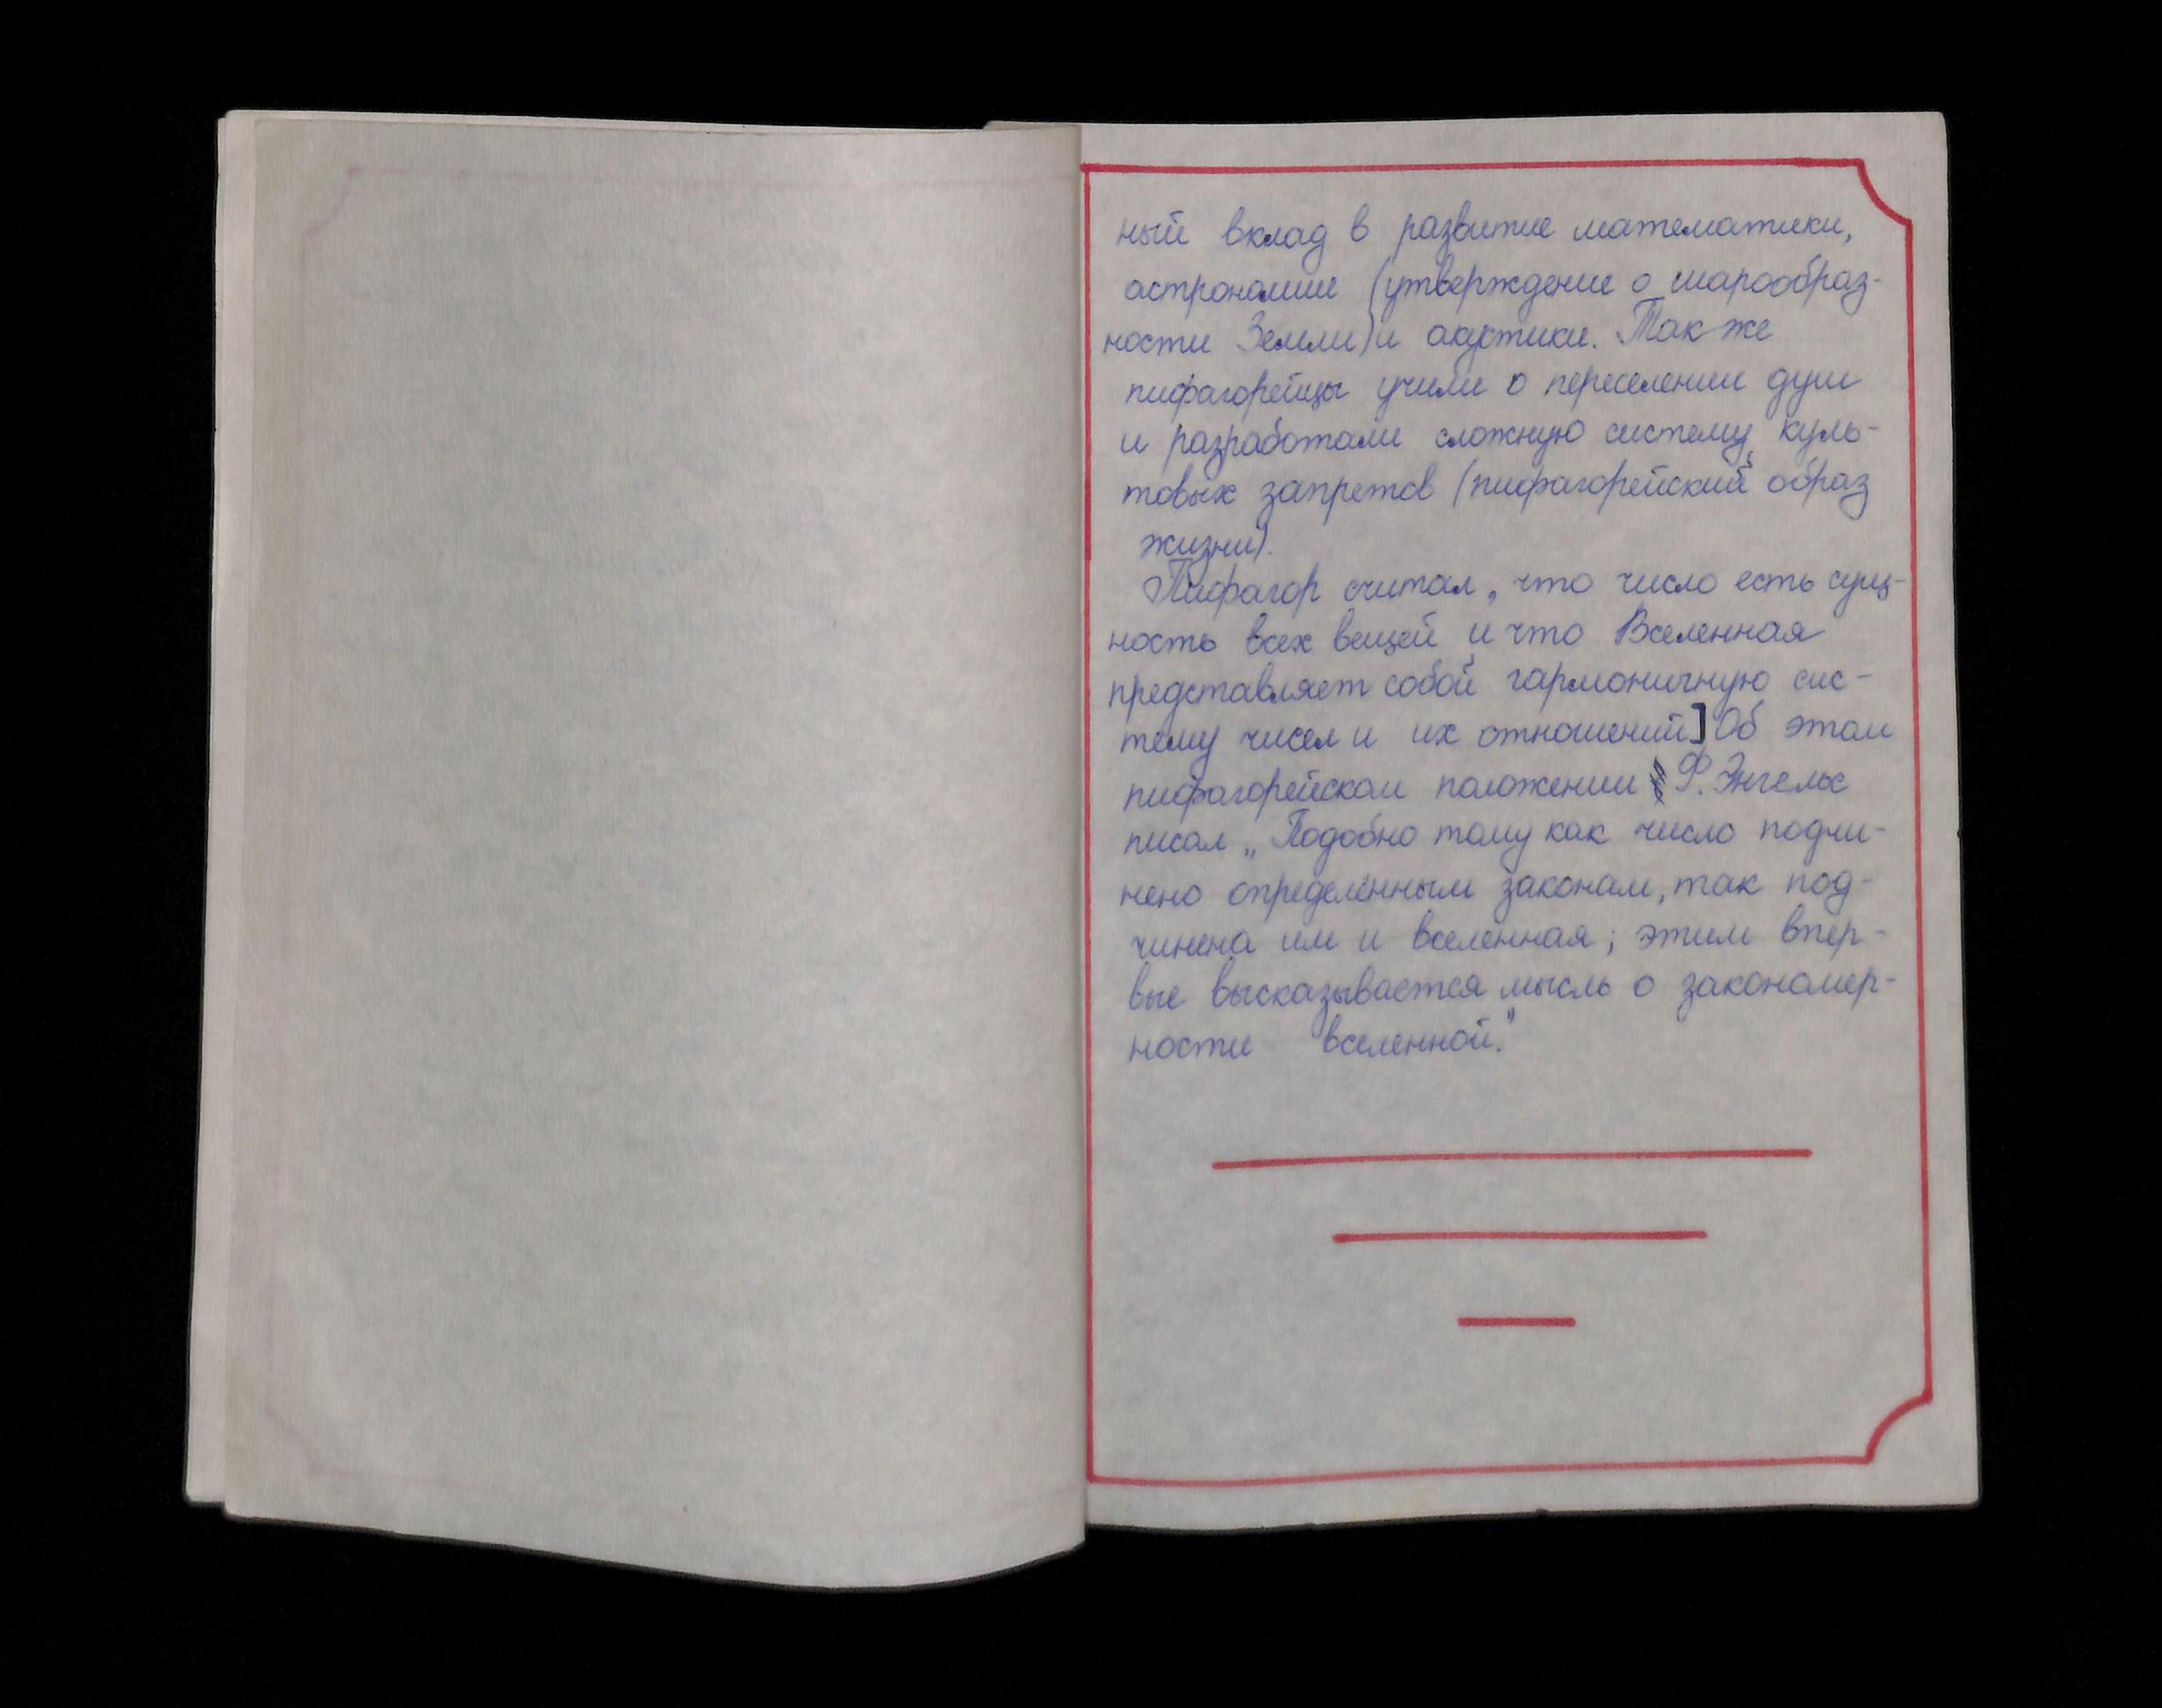 ный вклад в развитие математики,
астрономии (утверждение о шарообраз-
ности Земли) и акустики. Так же
пифагорейцы учили о переселении душ
и разработали сложную систему куль-
товых запретов (пифагорейский образ
жизни).
Пифагор считал, что число есть сущ-
ность всех вещей и что Вселенная
представляет собой гармоничную сис-
тему чисел и их отношений] Об этом
пифагорейском положении Ф. Энгельс
писал „Подобно тому как число подчи-
нено определённым законам, так под-
чинена им и вселенная; этим впер-
вые высказывается мысль о закономер-
ности вселенной."